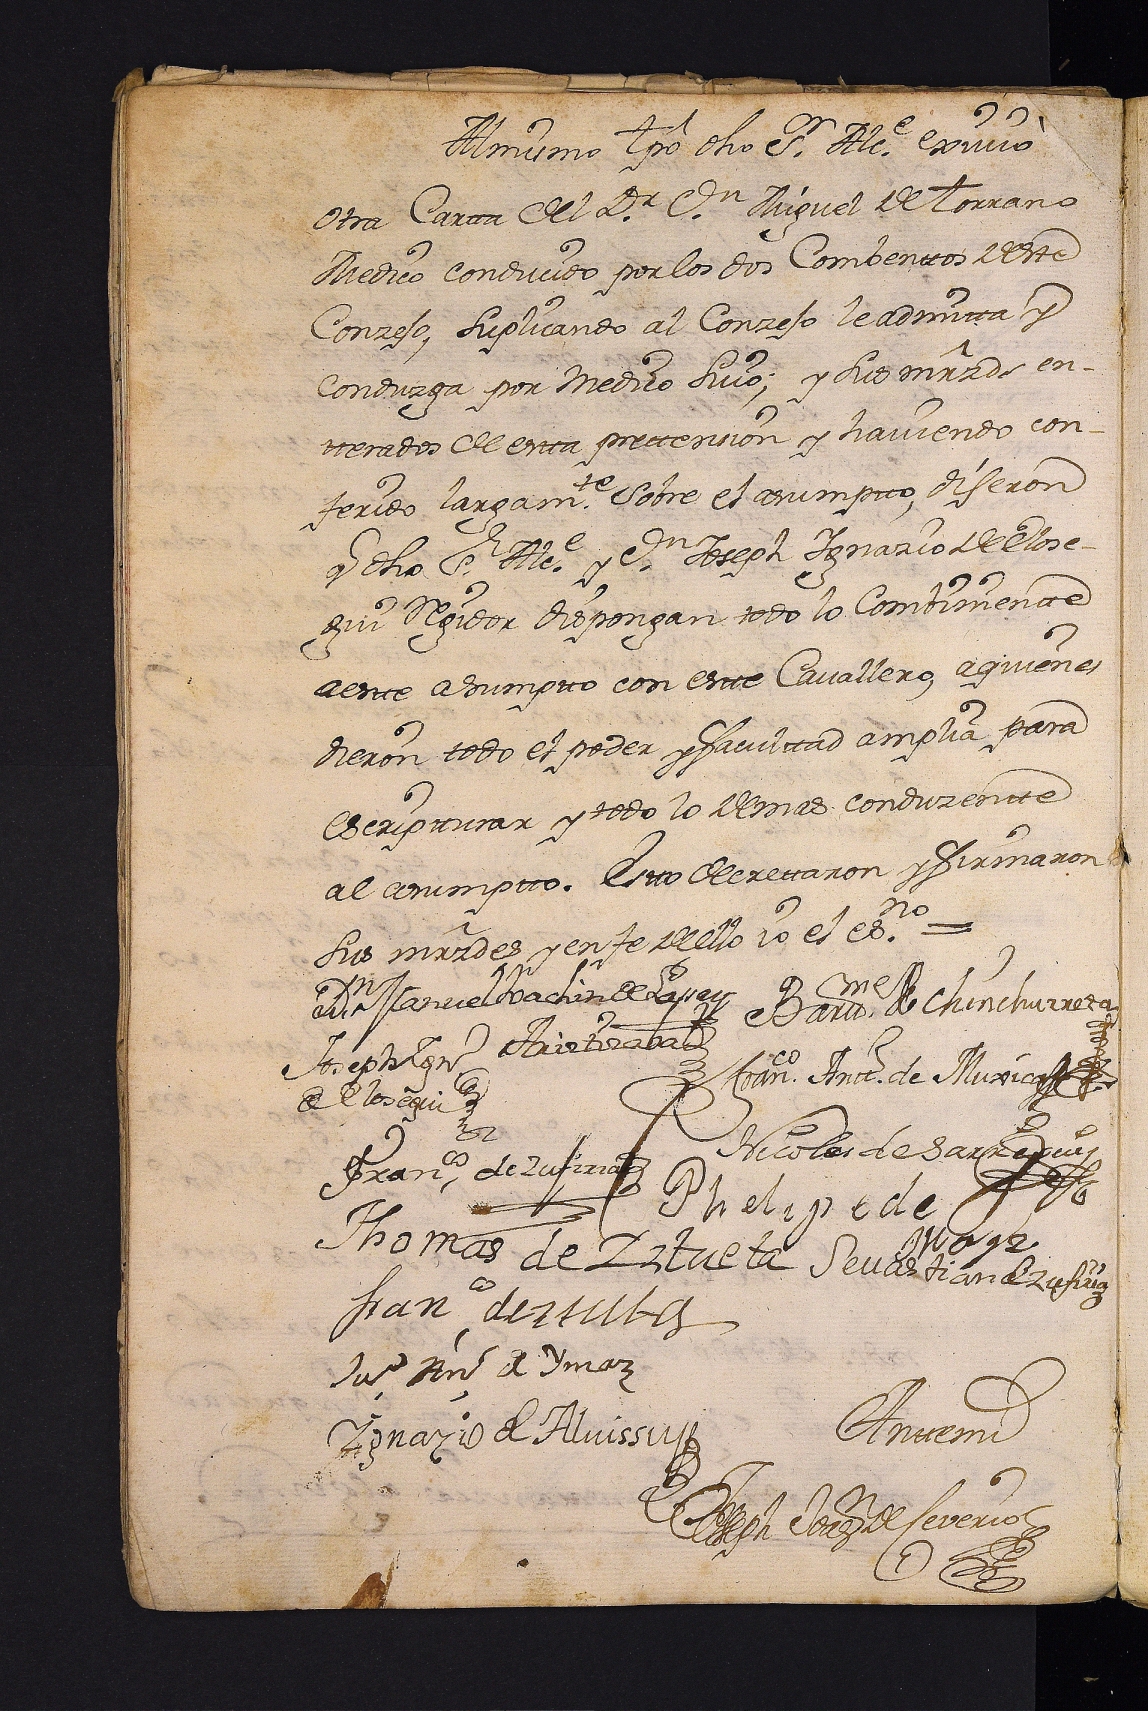 Al mismo tpô dho S.r Alc.e exiuiò
otra Cartta del D.r D.n Miguel de torrano
Medico conducido por los dos Combenttos deste
Conzejo, suplicando al Conzejo le admitta y
conduzga por Medico suio; y sus mrzds en-
tterados de estta prettension y hauiendo con-
ferido largam.te sobre el asumptto, dijeron
q dho S.r Alc.e y D.n Joseph Ignazio de Elose-
gui Regidor dispongan todo lo Combiniente
a este asumptto con estte Cauallero, a quienes
dieron todo el poder y facultad amplia para
escriptturar y todo lo demas conduzentte
al asumptto. Estto decrettaron y firmaron
sus mrzdes y en fe de ello io el es.no =
D.n Manuel Joachin de
Bar.me de Chinchurreta
Joseph Ign.o
de Elosegui
Fran.co Ant.o de Muxica
Nicolas de
Fran.co de Zufiria
Phelipe de
Thomas de Yztueta
Seuastian de Zufiria
fran.co de
de Ymaz
Ignazio de Aluissu
Antemi
Joseph de